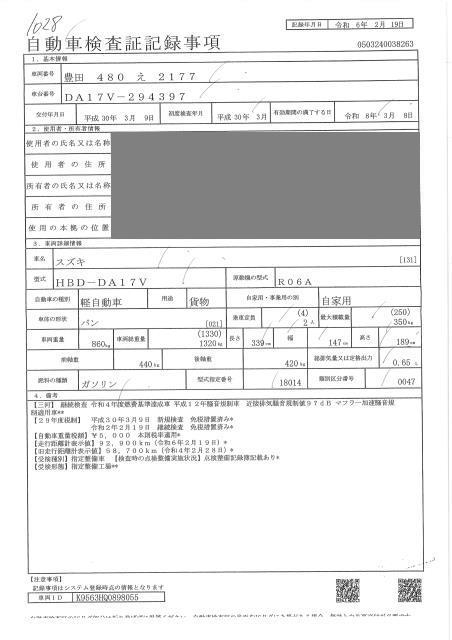 1028
記録年月日 令和 6年 2月 19日
自動車検査証記録事項
0503240038263
1. 基本情報
車両番号 豊田 480 え 2177
車台番号 DA17V-294397
交付年月日 平成 30年 3月 9日 初度検査年月 平成 30年 3月 有効期間の満了する日 令和 8年 3月 8日
2. 使用者・所有者情報
使用者の氏名又は名称
使用者の住所
所有者の氏名又は名称
所有者の住所
使用の本拠の位置
3. 車両詳細情報
車名 スズキ [131]
型式 HBD-DA17V 原動機の型式 R06A
自動車の種別 軽自動車 用途 貨物 自家用・事業用の別 自家用
車体の形状 バン [021] 乗車定員 (4) 2人 最大積載量 (250) 350kg
車両重量 860kg 車両総重量 (1330) 1320kg 長さ 339cm 幅 147cm 高さ 189cm
前軸重 440kg 後軸重 420kg 総排気量又は定格出力 0.65 L
燃料の種類 ガソリン 型式指定番号 18014 類別区分番号 0047
4. 備考
【三河】 継続検査 令和4年度燃費基準達成車 平成12年騒音規制車 近接排気騒音規制値97dB マフラー加速騒音規
制適用車**
【29年度税制】 平成30年3月9日 新規検査 免税措置済み*
令和2年2月19日 継続検査 免税措置済み*
【自動車重量税額】 ¥5,000 本則税率適用*
【走行距離計表示値】 92,900km (令和6年2月19日) *
【旧走行距離計表示値】 58,700km (令和4年2月28日) *
【受検種別】 指定整備車 【検査時の点検整備実施状況】 点検整備記録簿記載あり*
【受検形態】 指定整備工場**
【注意事項】
記録事項はシステム登録時点の情報となります
車両ID K9563HQ0898055